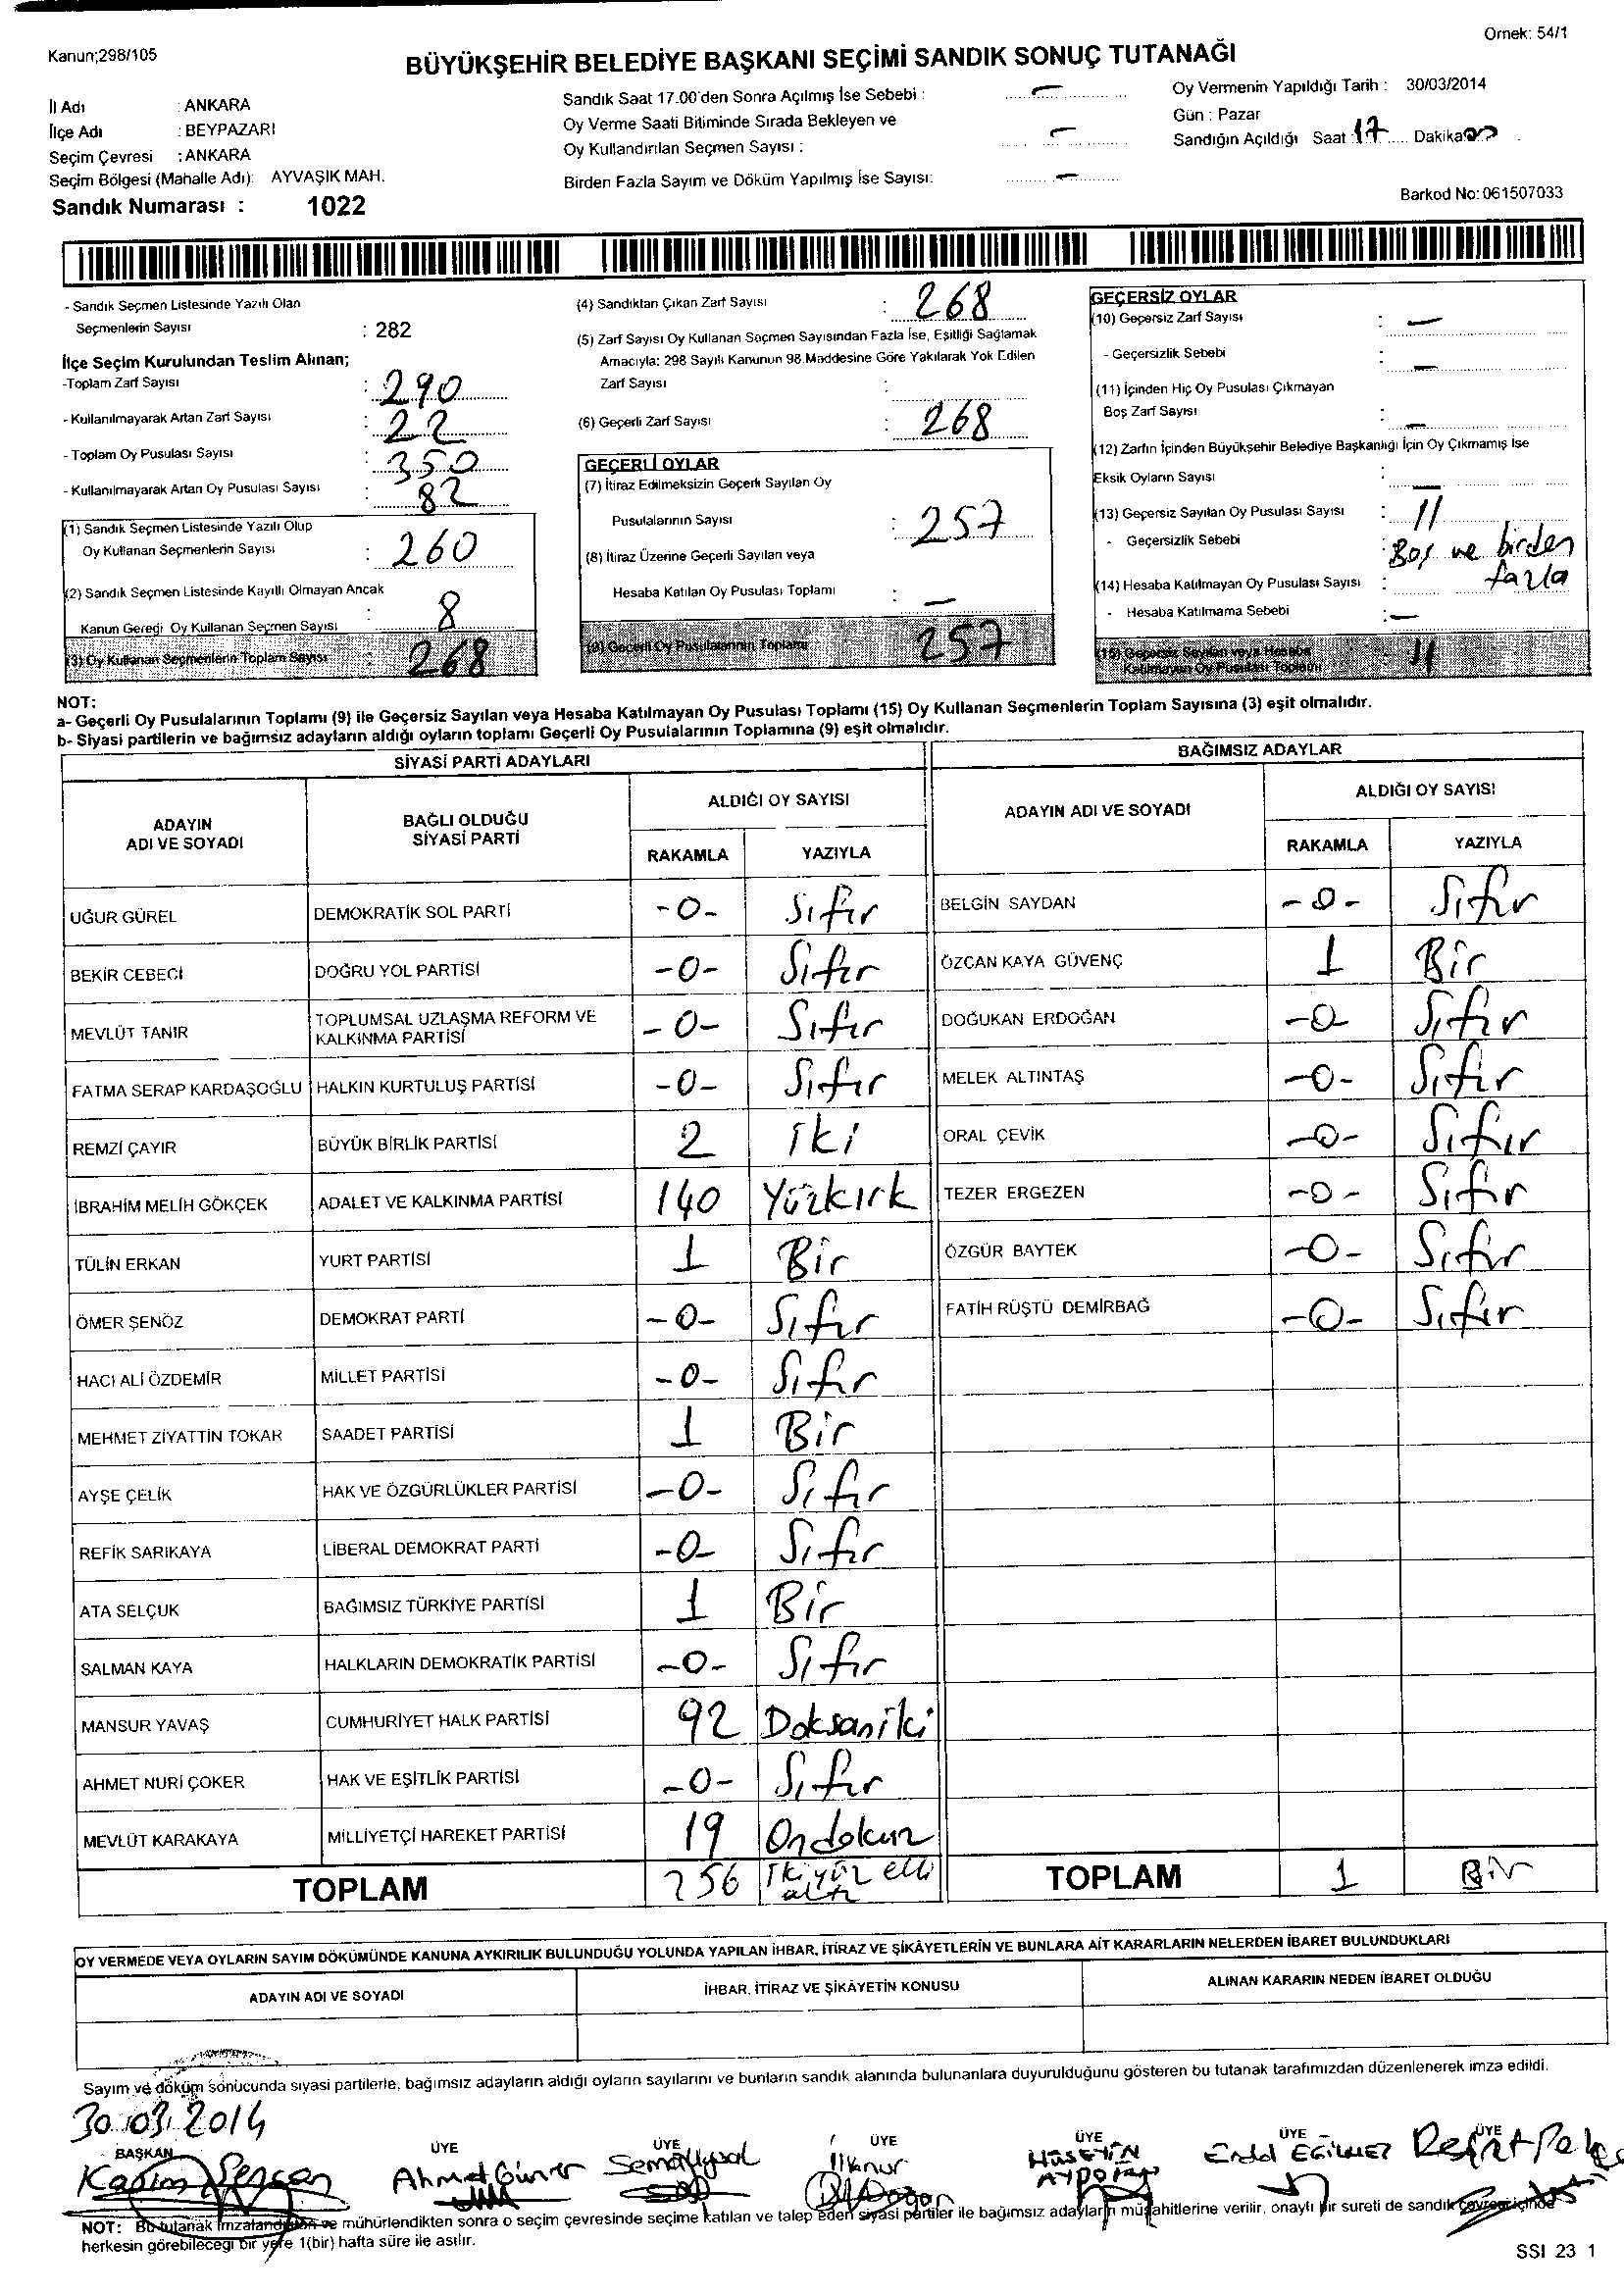 Kanun;298/105
Örnek: 54/1
BÜYÜKŞEHİR BELEDİYE BAŞKANI SEÇİMİ SANDIK SONUÇ TUTANAĞI
İl Adı : ANKARA
İlçe Adı : BEYPAZARI
Seçim Çevresi : ANKARA
Seçim Bölgesi (Mahalle Adı): AYVAŞIK MAH.
Sandık Numarası : 1022
Sandık Saat 17.00'den Sonra Açılmış İse Sebebi : —
Oy Verme Saati Bitiminde Sırada Bekleyen ve
Oy Kullandırılan Seçmen Sayısı : —
Birden Fazla Sayım ve Döküm Yapılmış İse Sayısı: —
Oy Vermenin Yapıldığı Tarih : 30/03/2014
Gün : Pazar
Sandığın Açıldığı Saat 17 Dakika 00
Barkod No: 061507033
- Sandık Seçmen Listesinde Yazılı Olan
Seçmenlerin Sayısı : 282
İlçe Seçim Kurulundan Teslim Alınan;
-Toplam Zarf Sayısı : 290
- Kullanılmayarak Artan Zarf Sayısı : 22
- Toplam Oy Pusulası Sayısı : 350
- Kullanılmayarak Artan Oy Pusulası Sayısı : 82
(1) Sandık Seçmen Listesinde Yazılı Olup
Oy Kullanan Seçmenlerin Sayısı : 260
(2) Sandık Seçmen Listesinde Kayıtlı Olmayan Ancak
Kanun Gereği Oy Kullanan Seçmen Sayısı : 8
(3) Oy Kullanan Seçmenlerin Toplam Sayısı : 268
(4) Sandıktan Çıkan Zarf Sayısı : 268
(5) Zarf Sayısı Oy Kullanan Seçmen Sayısından Fazla İse, Eşitliği Sağlamak
Amacıyla; 298 Sayılı Kanunun 98.Maddesine Göre Yakılarak Yok Edilen
Zarf Sayısı :
(6) Geçerli Zarf Sayısı : 268
GEÇERLİ OYLAR
(7) İtiraz Edilmeksizin Geçerli Sayılan Oy
Pusulalarının Sayısı : 257
(8) İtiraz Üzerine Geçerli Sayılan veya
Hesaba Katılan Oy Pusulası Toplamı : —
(9) Geçerli Oy Pusulalarının Toplamı 257
GEÇERSİZ OYLAR
(10) Geçersiz Zarf Sayısı : —
- Geçersizlik Sebebi : —
(11) İçinden Hiç Oy Pusulası Çıkmayan
Boş Zarf Sayısı : —
(12) Zarfın İçinden Büyükşehir Belediye Başkanlığı İçin Oy Çıkmamış İse
Eksik Oyların Sayısı : —
(13) Geçersiz Sayılan Oy Pusulası Sayısı : 11
- Geçersizlik Sebebi : Boş ve birden
fazla
(14) Hesaba Katılmayan Oy Pusulası Sayısı :
- Hesaba Katılmama Sebebi : —
(15) Geçersiz Sayılan veya Hesaba
Katılmayan Oy Pusulası Toplamı 11
NOT:
a- Geçerli Oy Pusulalarının Toplamı (9) ile Geçersiz Sayılan veya Hesaba Katılmayan Oy Pusulası Toplamı (15) Oy Kullanan Seçmenlerin Toplam Sayısına (3) eşit olmalıdır.
b- Siyasi partilerin ve bağımsız adayların aldığı oyların toplamı Geçerli Oy Pusulalarının Toplamına (9) eşit olmalıdır.
SİYASİ PARTİ ADAYLARI
ADAYIN
ADI VE SOYADI
BAĞLI OLDUĞU
SİYASİ PARTİ
ALDIĞI OY SAYISI
RAKAMLA YAZIYLA
UĞUR GÜREL DEMOKRATİK SOL PARTİ -0- Sıfır
BEKİR CEBECİ DOĞRU YOL PARTİSİ -0- Sıfır
MEVLÜT TANIR TOPLUMSAL UZLAŞMA REFORM VE KALKINMA PARTİSİ -0- Sıfır
FATMA SERAP KARDAŞOĞLU HALKIN KURTULUŞ PARTİSİ -0- Sıfır
REMZİ ÇAYIR BÜYÜK BİRLİK PARTİSİ 2 iki
İBRAHİM MELİH GÖKÇEK ADALET VE KALKINMA PARTİSİ 140 Yüzkırk
TÜLİN ERKAN YURT PARTİSİ 1 Bir
ÖMER ŞENÖZ DEMOKRAT PARTİ -0- Sıfır
HACI ALİ ÖZDEMİR MİLLET PARTİSİ -0- Sıfır
MEHMET ZİYATTİN TOKAR SAADET PARTİSİ 1 Bir
AYŞE ÇELİK HAK VE ÖZGÜRLÜKLER PARTİSİ -0- Sıfır
REFİK SARIKAYA LİBERAL DEMOKRAT PARTİ -0- Sıfır
ATA SELÇUK BAĞIMSIZ TÜRKİYE PARTİSİ 1 Bir
SALMAN KAYA HALKLARIN DEMOKRATİK PARTİSİ -0- Sıfır
MANSUR YAVAŞ CUMHURİYET HALK PARTİSİ 92 Doksaniki
AHMET NURİ ÇOKER HAK VE EŞİTLİK PARTİSİ -0- Sıfır
MEVLÜT KARAKAYA MİLLİYETÇİ HAREKET PARTİSİ 19 Ondokuz
TOPLAM 256 İkiyüz elli altı
BAĞIMSIZ ADAYLAR
ADAYIN ADI VE SOYADI
ALDIĞI OY SAYISI
RAKAMLA YAZIYLA
BELGİN SAYDAN -0- Sıfır
ÖZCAN KAYA GÜVENÇ 1 Bir
DOĞUKAN ERDOĞAN -0- Sıfır
MELEK ALTINTAŞ -0- Sıfır
ORAL ÇEVİK -0- Sıfır
TEZER ERGEZEN -0- Sıfır
ÖZGÜR BAYTEK -0- Sıfır
FATİH RÜŞTÜ DEMİRBAĞ -0- Sıfır
TOPLAM 1 Bir
OY VERMEDE VEYA OYLARIN SAYIM DÖKÜMÜNDE KANUNA AYKIRILIK BULUNDUĞU YOLUNDA YAPILAN İHBAR, İTİRAZ VE ŞİKÂYETLERİN VE BUNLARA AİT KARARLARIN NELERDEN İBARET BULUNDUKLARI
ADAYIN ADI VE SOYADI İHBAR, İTİRAZ VE ŞİKÂYETİN KONUSU ALINAN KARARIN NEDEN İBARET OLDUĞU
Sayım ve döküm sonucunda siyasi partilerle, bağımsız adayların aldığı oyların sayılarını ve bunların sandık alanında bulunanlara duyurulduğunu gösteren bu tutanak tarafımızdan düzenlenerek imza edildi.
30.03.2014
BAŞKAN ÜYE ÜYE ÜYE ÜYE ÜYE ÜYE
Ahmet Güner Sema İlknur Doğan HÜSEYİN
NOT: Bu tutanak imzalandıktan ve mühürlendikten sonra o seçim çevresinde seçime katılan ve talep eden siyasi partiler ile bağımsız adayların müşahitlerine verilir, onaylı bir sureti de sandık çevresi içinde
herkesin görebileceği bir yere 1(bir) hafta süre ile asılır.
SSI 23 1